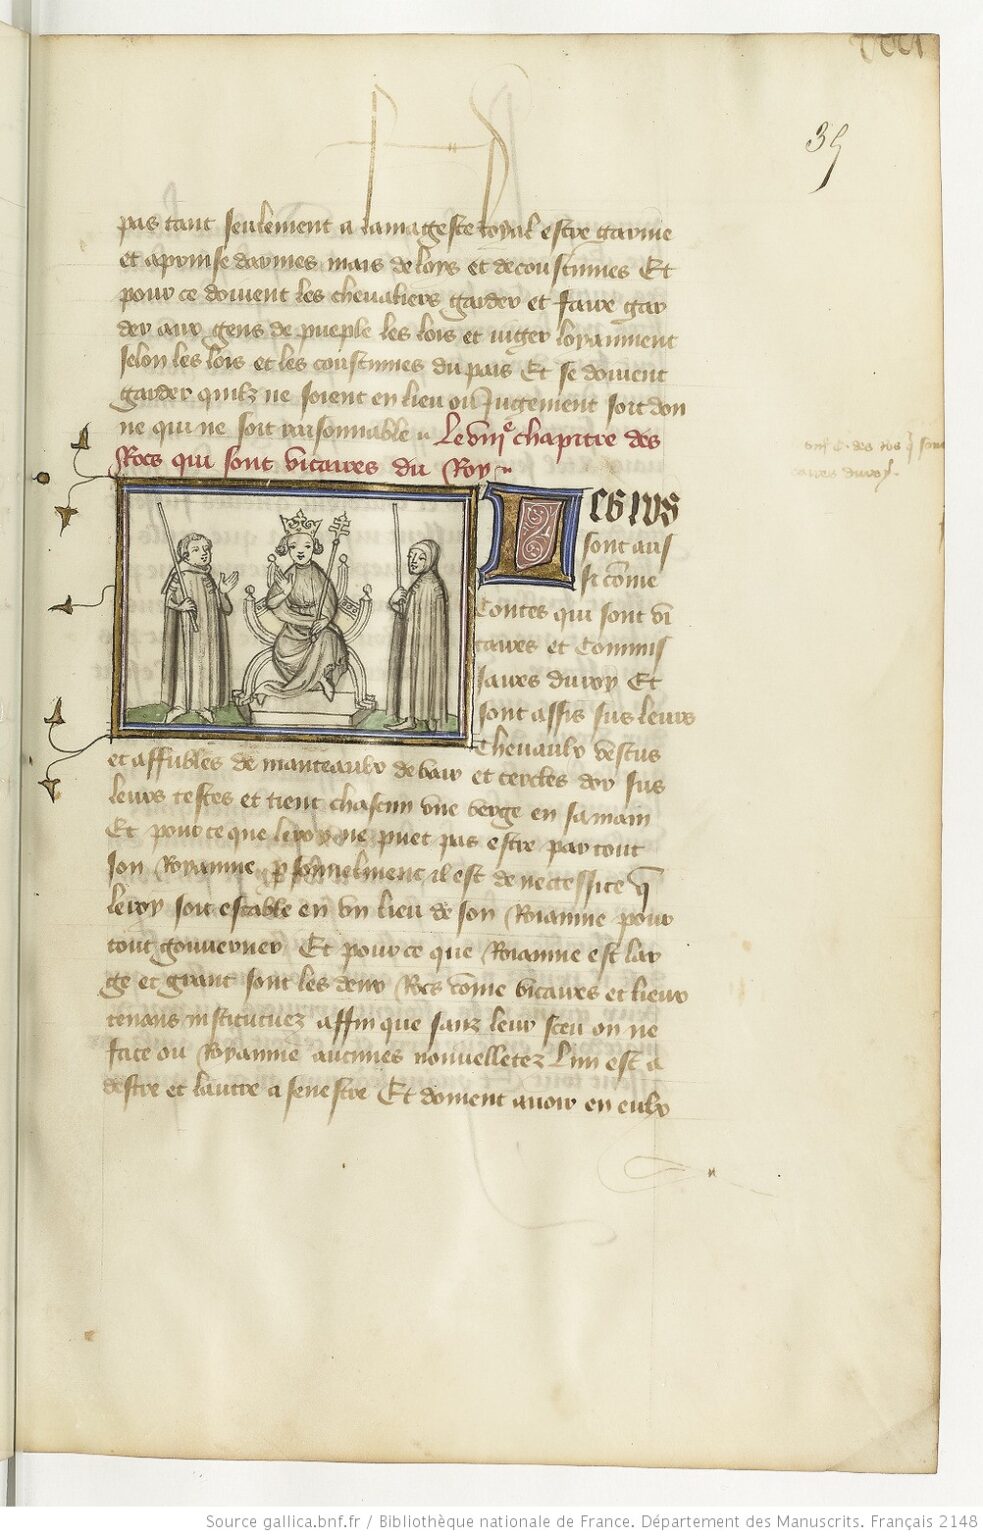 35
pas tant seulement a la mageste royal estre garnie
et aprinse darmes mais de loys et de coustumes Et
pour ce doivent les chevaliers garder et faire gar
der aux gens de pueple les lois et iuger loyaument
selon les lois et les coustumes du pais Et se doivent
garder quilz ne soient en lieu ou Jugement soit don
ne qui ne soit raisonnable Le viiie chapitre des
Rocs qui sont vicaires du Roy
sont aus
si cōme
Contes qui sont vi
caires et Commis
saires du roy Et
sont assis sus leurs
Chevaulx vestus
et affubles de manteaulx de vair et cercles dor sus
leurs testes et tient chascun vne verge en sa main
Et pour ce que li roy ne puet pas estre par tout
son Royaume il est de necessite q̄
le roy soit estable en vn lieu de son Roiaume pour
tout gouverner Et pour ce que Roiaume est lar
ge et grant sont les deux Rocs cōme vicaires et lieux
tenans instituez affin que sanz leur sceu on ne
face ou Royaume aucunes nouvelletez Lun est a
destre et lautre a senestre Et doivent avoir en eulx
Source gallica.bnf.fr / Bibliothèque nationale de France. Département des Manuscrits. Français 2148